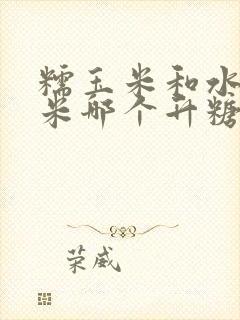 糯玉米和水
米哪个升糖
荣威